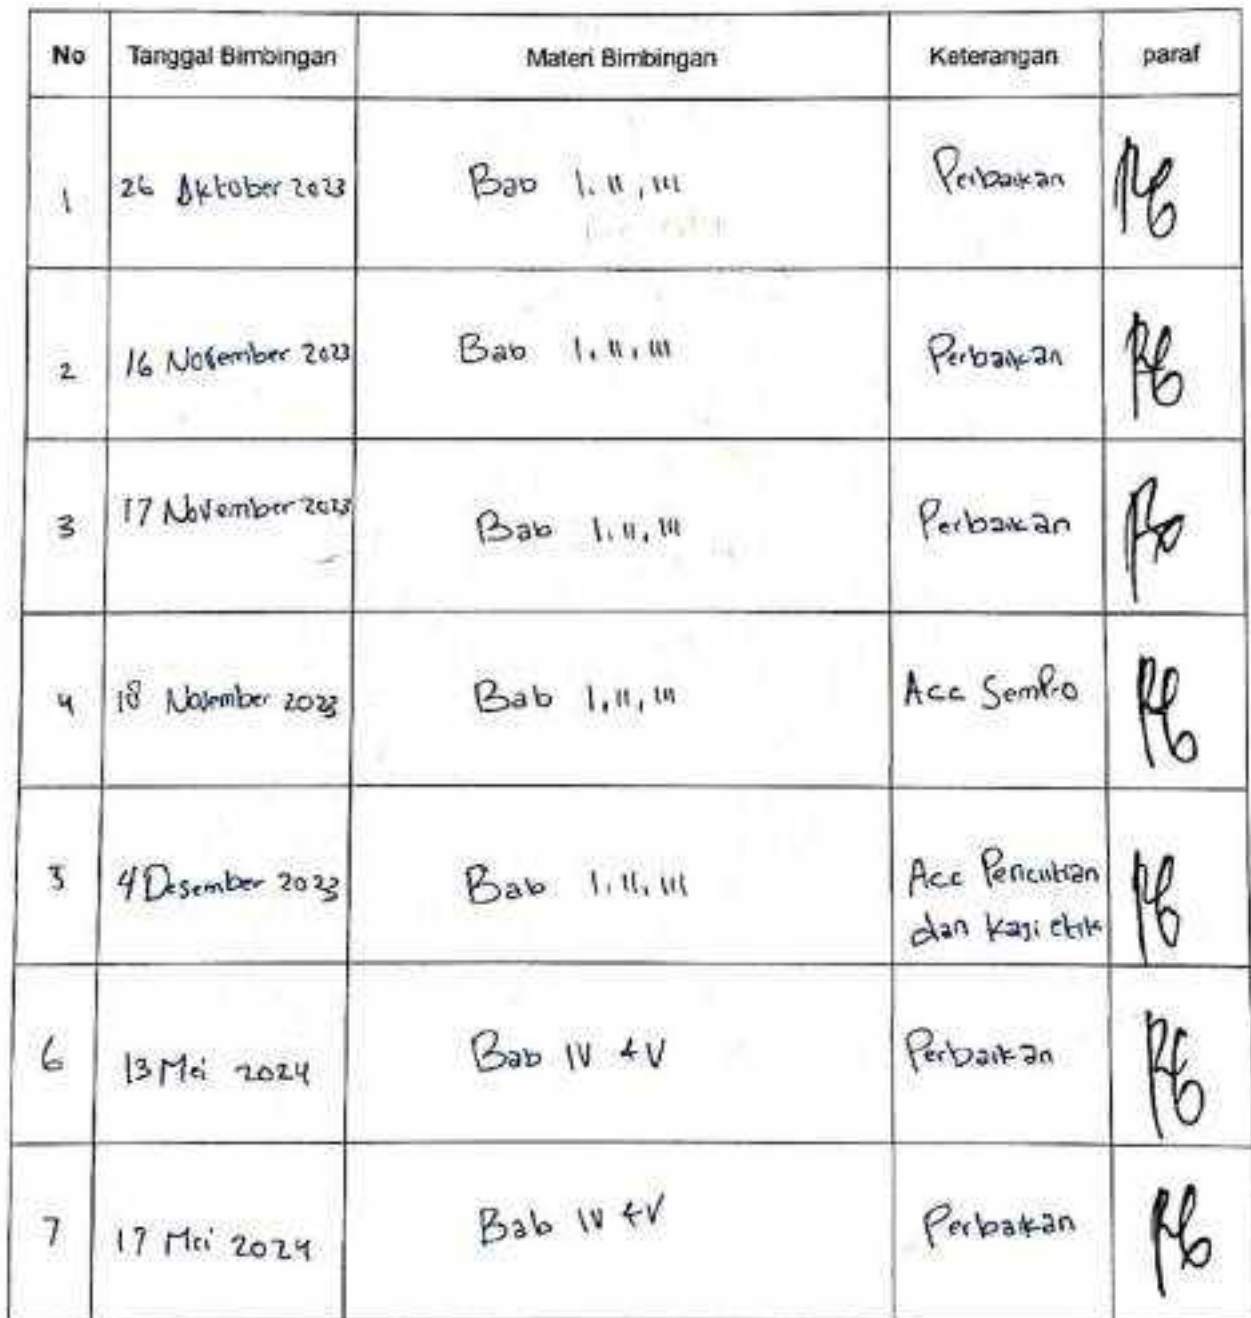 No Tanggal Bimbingan Materi Bimbingan Keterangan paraf
1 26 Oktober 2023 Bab I, II, III Perbaikan
2 16 November 2023 Bab I, II, III Perbaikan
3 17 November 2023 Bab I, II, III Perbaikan
4 18 November 2023 Bab I, II, III Acc Sempro
5 4 Desember 2023 Bab I, II, III Acc Penelitian
dan kaji etik
6 13 Mei 2024 Bab IV & V Perbaikan
7 17 Mei 2024 Bab IV & V Perbaikan